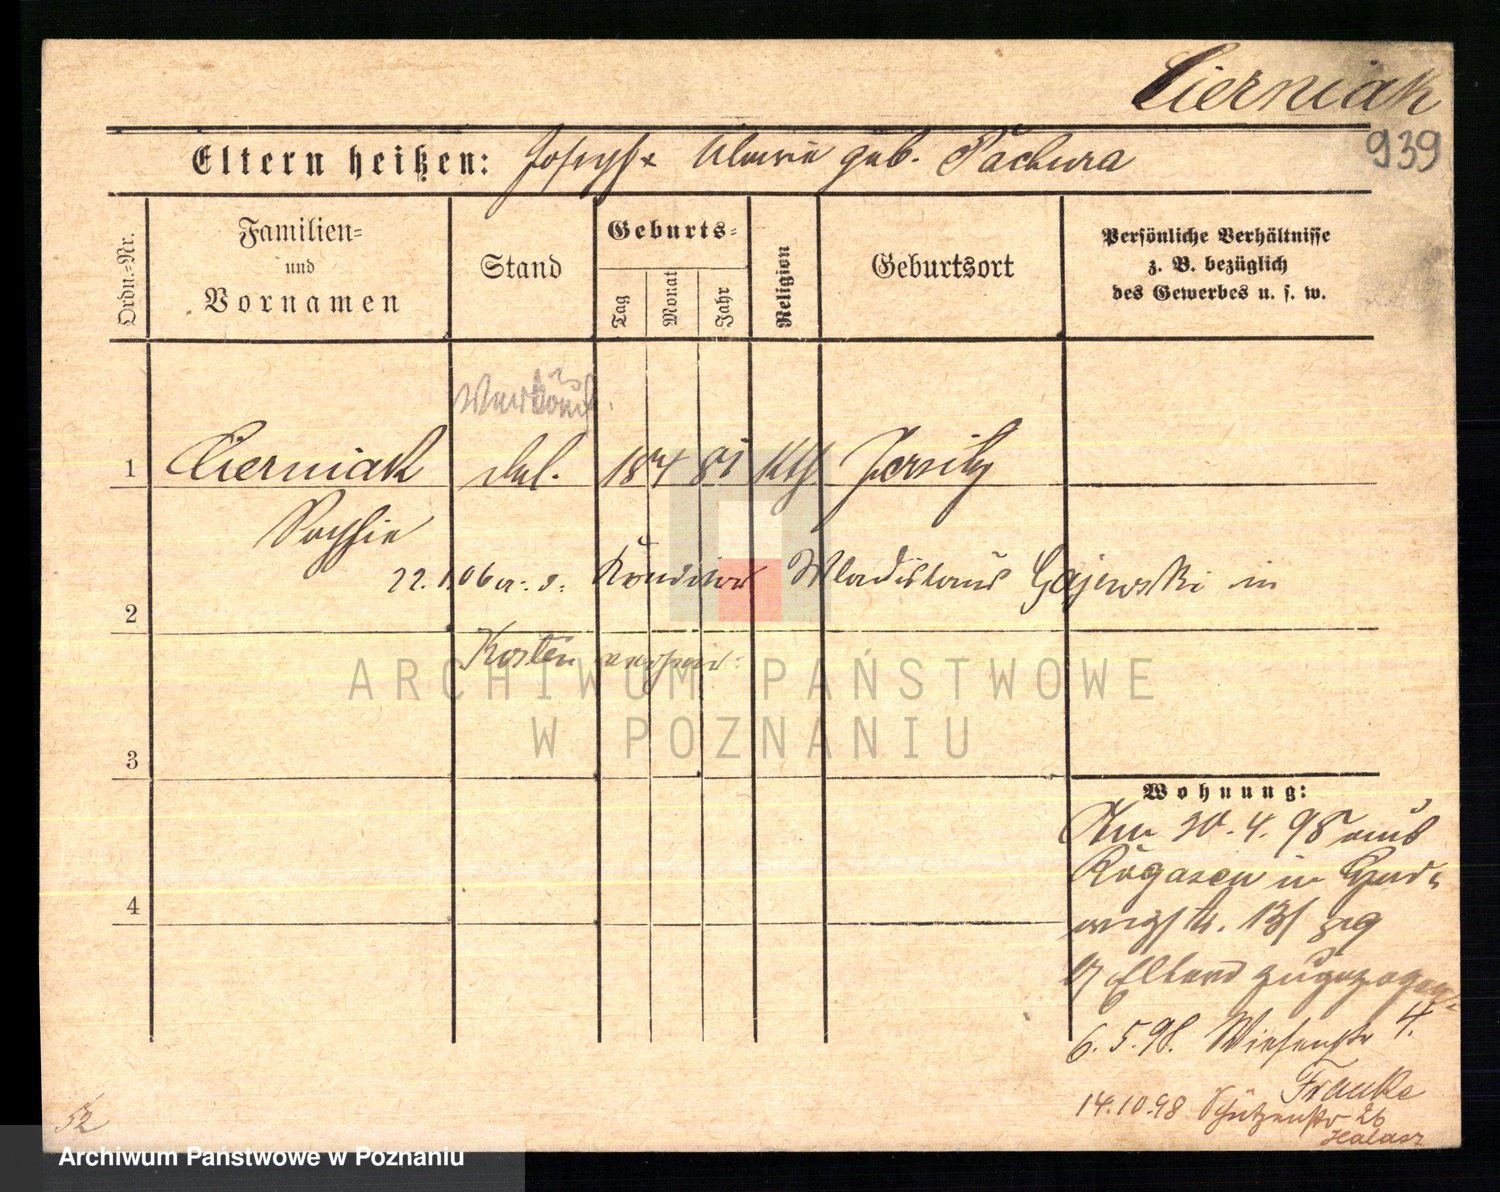 Cierniak
939
Eltern heißen: Joseph & Maria geb. Pachura
Ordn.-Nr.
Familien-
und
Vornamen
Stand
Geburts-
Tag
Monat
Jahr
Religion
Geburtsort
Persönliche Verhältnisse
z. B. bezüglich
des Gewerbes u. s. w.
1 Cierniak led. 18 4 81 kth Jersitz
Sophie
22. 1. 06 a. d. Konditor Wladislaus Gajewski in
2
Kosten verheir.
3
4
Wohnung:
Am 30. 4. 98 aus
Rogasen in
13/
b/ Eltern zugezogen
6. 5. 98. Wiesenstr 4.
Franke
14.10.98 Schützenstr 26
Halasz
52
ARCHIWUM PAŃSTWOWE
W POZNANIU
Archiwum Państwowe w Poznaniu